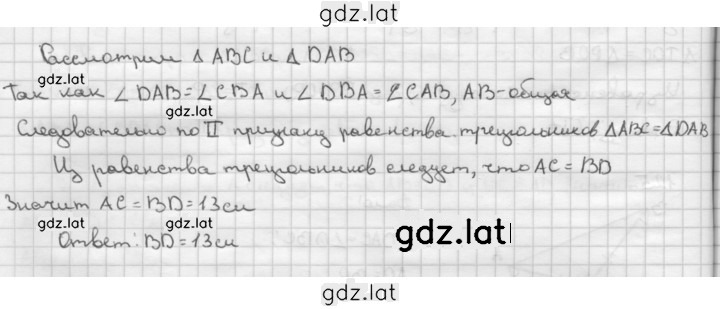 gdz.lat
Рассмотрим Δ ABC и Δ DAB
gdz.lat
Так как ∠ DAB = ∠ CBA и ∠ DBA = ∠ CAB, AB-общая
Следовательно по II признаку равенства треугольников ΔABC = ΔDAB
Из равенства треугольников следует, что AC = BD
Значит AC = BD = 13 см
gdz.lat gdz.lat
Ответ: BD = 13 см
gdz.lat
gdz.lat